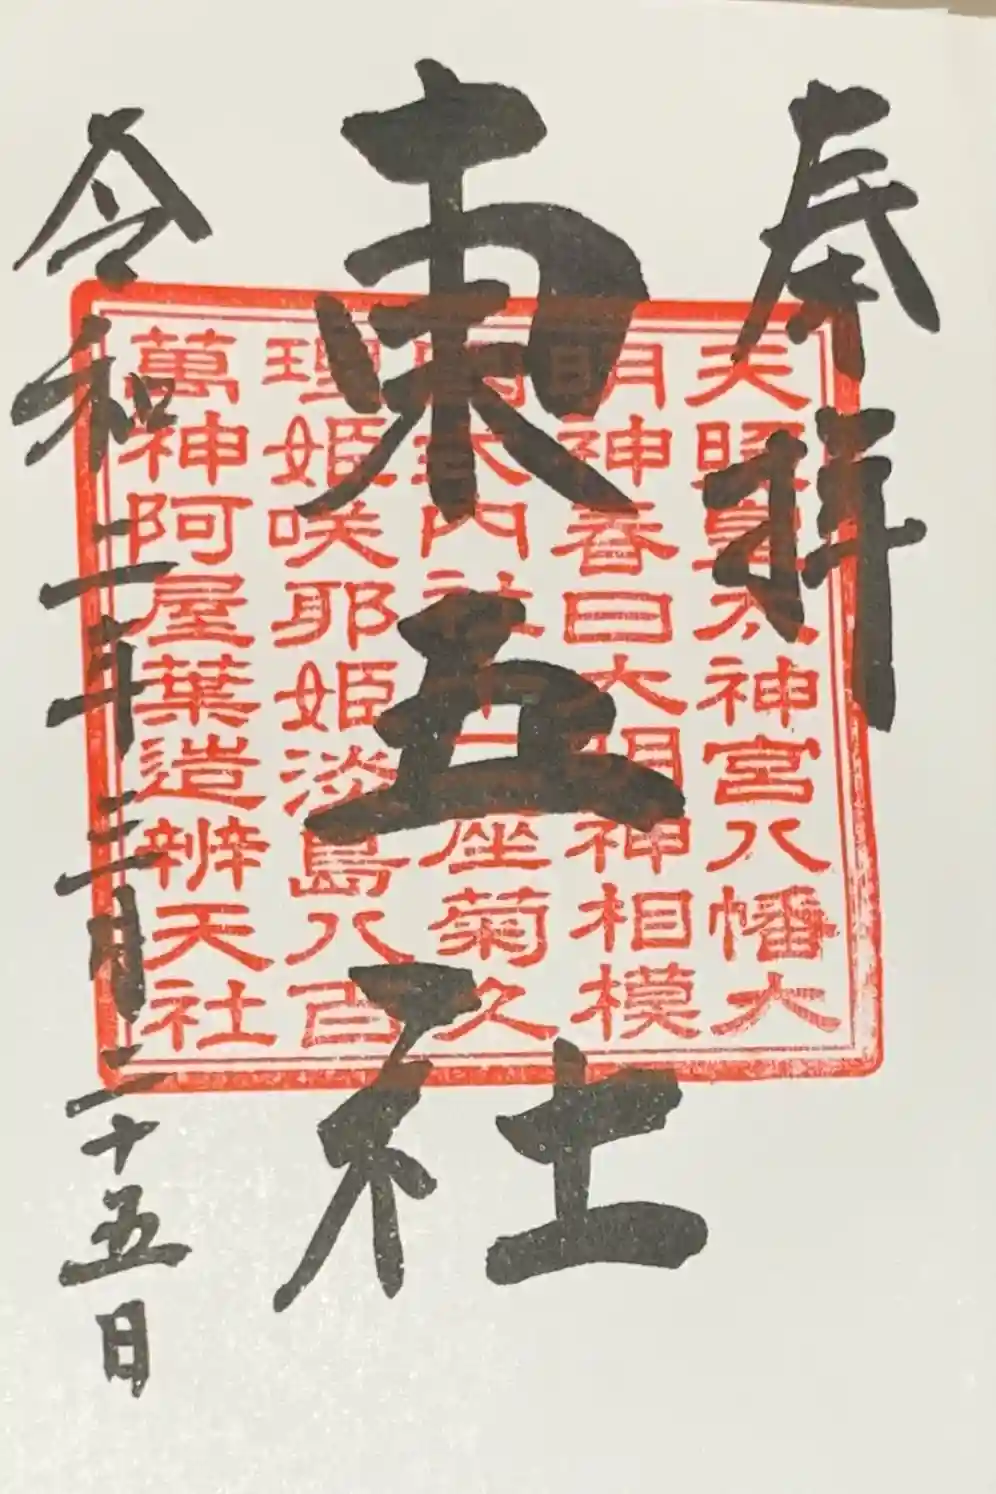 奉拝
東五社
令和二年三月二十五日
天照皇太神宮八幡大
明神春日大明神相模
國式内社十座菊久
理姫咲耶姫淡島八百
萬神阿屋葉造辨天社